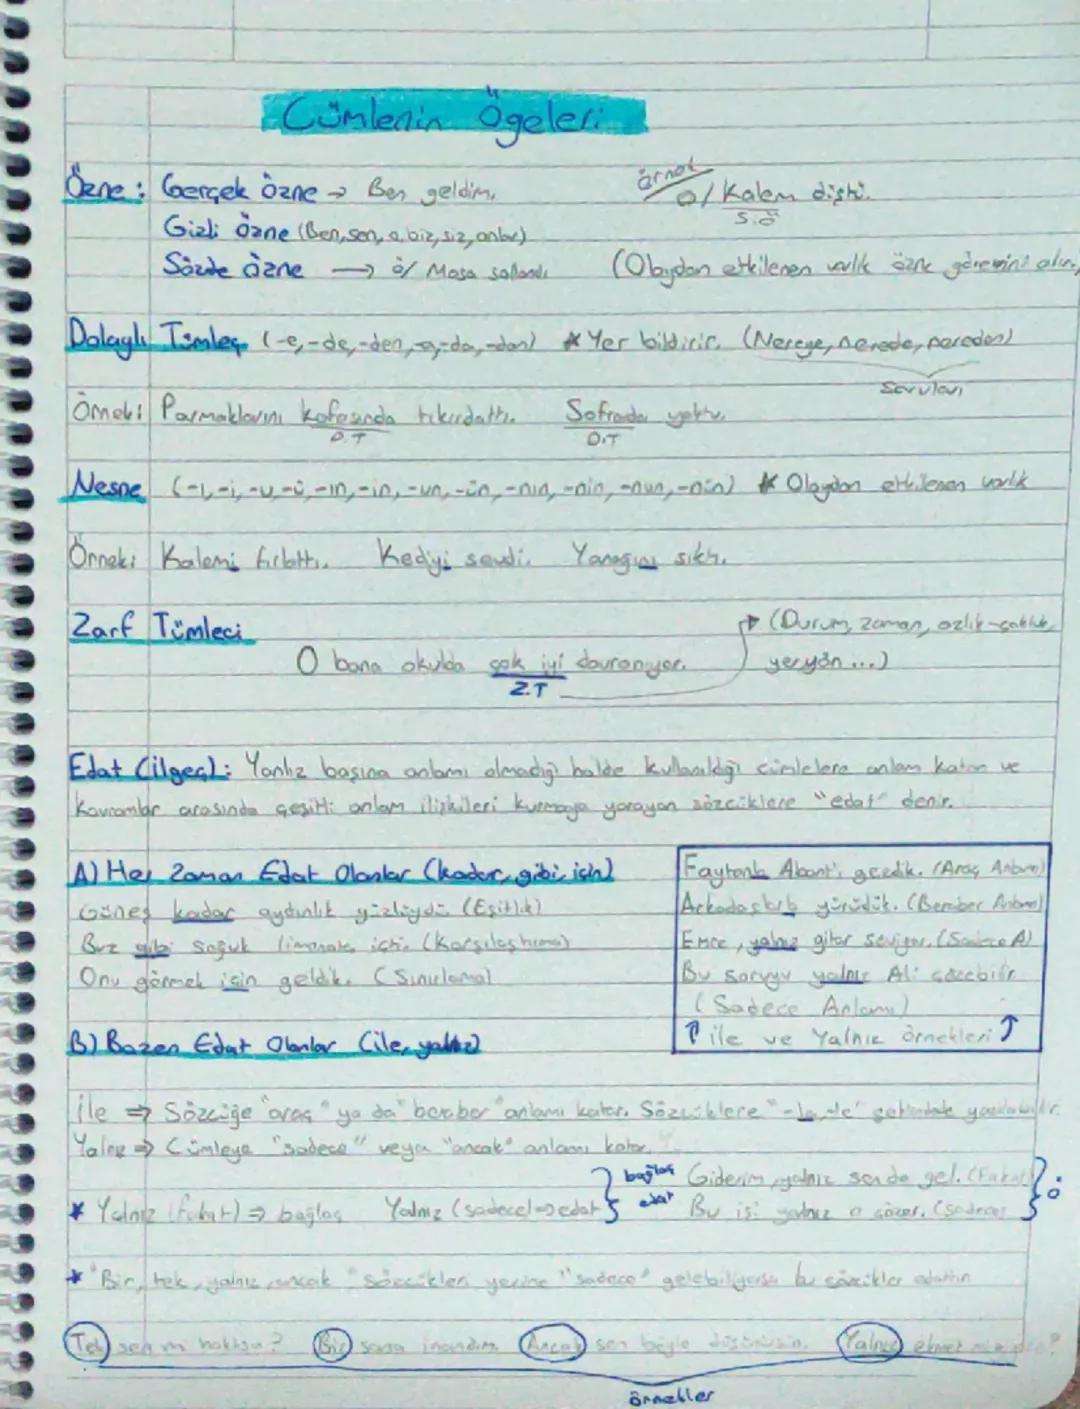 Cümlenin Ögeleri
Özne: Gerçek özne → Ben geldim.
örnek
o/ Kalem düştü.
S.Ö
Gizli özne (Ben, sen, o, biz, siz, onlar)
Sözde özne → ö/ Masa sallandı (Olaydan etkilenen varlık özne görevini alır.)
Dolaylı Tümleç (-e, -de, -den, -a, -da, -dan) * Yer bildirir. (Nereye, nerede, nereden)
Soruları
Örnek: Parmaklarını kafasında tıkırdattı. Sofrada yoktu.
D.T D.T
Nesne (-ı, -i, -u, -ü, -ın, -in, -un, -ün, -nın, -nin, -nun, -nün) * Olaydan etkilenen varlık
Örnek: Kalemi fırlattı. Kediyi sevdi. Yanağını sıktı.
Zarf Tümleci
(Durum, zaman, azlık-çokluk,
O bana okulda çok iyi davranıyor. yer yön...)
Z.T
Edat (ilgeç): Yanlız başına anlamı olmadığı halde kullanıldığı cümlelere anlam katan ve
kavramlar arasında çeşitli anlam ilişkileri kurmaya yarayan sözcüklere "edat" denir.
A) Her Zaman Edat Olanlar (kadar, gibi, için)
Güneş kadar aydınlık yüzlüydü (Eşitlik)
Buz gibi soğuk limonata içti. (Karşılaştırma)
Onu görmek için geldik. (Sınırlama)
Faytonla Abant'ı gezdik. (Araç Anlamı)
Arkadaşlarla yürüdük. (Beraber Anlamı)
Emre, yalnız gitar seviyor. (Sadece A)
Bu soruyu yalnız Ali çözebilir
(Sadece Anlamı)
↑ ile ve Yalnız örnekleri ↑
B) Bazen Edat Olanlar (ile, yalnız)
İle ⇒ Sözcüğe "araç" ya da "beraber" anlamı katar. Sözcüklere "-la, -le" şeklinde yazılabilir.
Yalnız ⇒ Cümleye "sadece" veya "ancak" anlamı katar.
* Yalnız (fakat) ⇒ bağlaç Yalnız (sadece) ⇒ edat
bağlaç Giderim, yalnız sen de gel. (Fakat)
edat Bu işi yalnız o çözer. (sadece)
ö
* "Bir, tek, yalnız, ancak" sözcükleri yerine "sadece" gelebiliyorsa bu sözcükler edattır
Tek sen mi haklısın? Bir sana inandım. Ancak sen böyle düşünürsün. Yalnız ekmek
örnekler